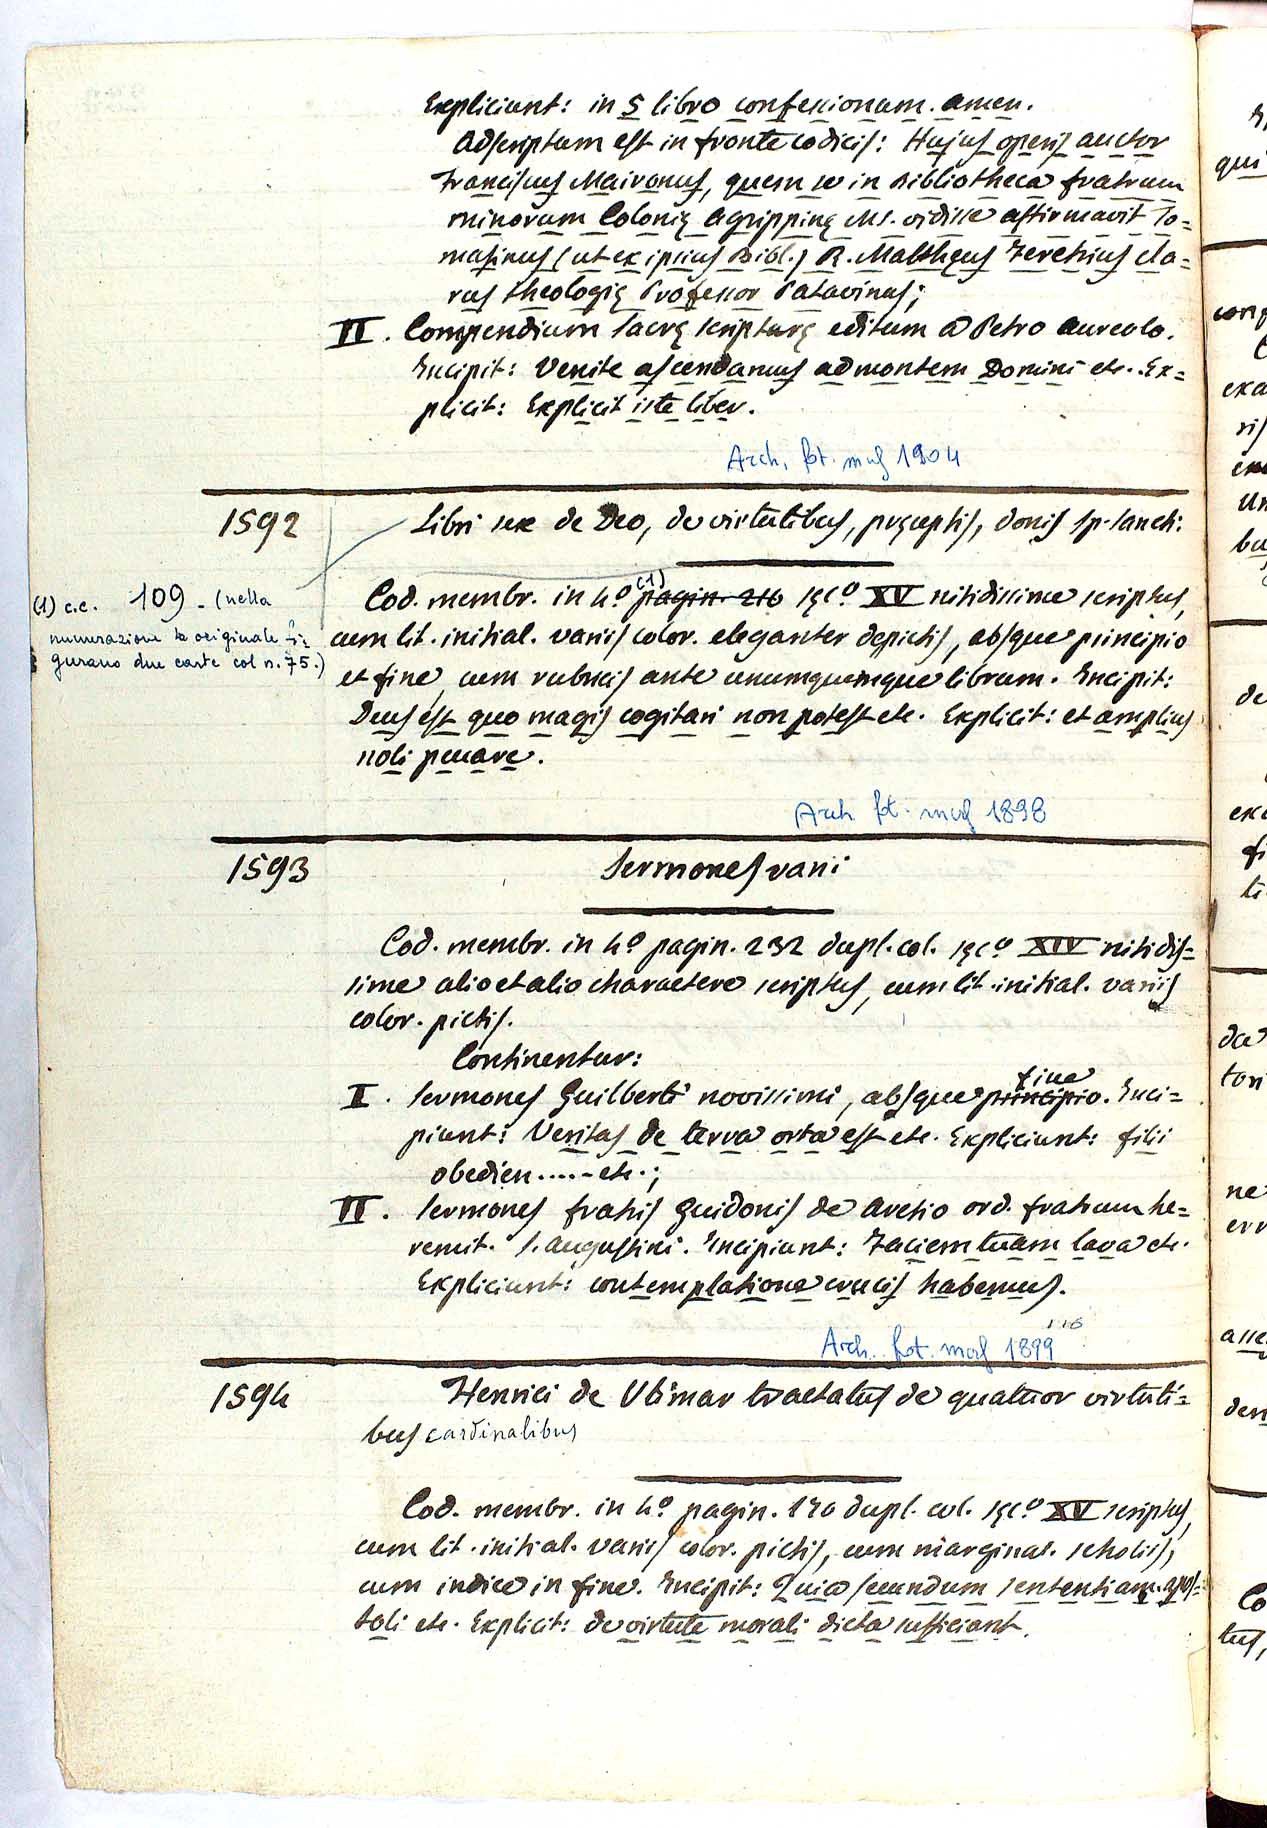 Expliciunt: in 5 libro confessionum. amen.
Adscriptum est in fronte codicis: Hujus operis auctor
Franciscus Maironus, quem se in Bibliotheca fratrum
minorum Colonię Agrippinę Ms. vidisse affirmavit To=
masinus (ut ex ipsius Bibl.) R. Matthęus Feretrius cla=
rus theologię Professor Patavinus;
II. Compendium sacrę scripturę editum a Petro Aureolo.
Incipit: Venite ascendamus ad montem Domini etc. Ex=
plicit: Explicit iste liber.
Arch. fot. mag 1904
1592 Libri sex de Deo, de virtutibus, pręceptis, donis Sp. Sancti.
Cod. membr. in 4.º (1) pagin. 216 sęc.º XV nitidissime scriptus,
cum lit. initial. variis color. eleganter depictis, absque principio
et fine, cum rubricis ante unumquemque librum. Incipit:
Deus est quo magis cogitari non potest etc. Explicit: et amplius
noli peccare.
(1) c.c. 109 - (nella
numerazione originale fi=
gurano due carte col n. 75.)
Arch fot. mag 1898
1593 Sermones varii
Cod. membr. in 4.º pagin. 232 dupl. col. sęc.º XIV nitidis=
sime alio et alio charactere scriptus, cum lit. initial. variis
color. pictis.
Continentur:
I. Sermones Guilberti novissimi, absque principio fine. Inci=
piunt: Veritas de terra orta est etc. Expliciunt: filii
obedien..... etc.;
II. Sermones fratris Guidonis de Aretio ord. fratrum he=
remit. S. Augustini. Incipiunt: Faciem tuam lava etc.
Expliciunt: contemplatione crucis habemus.
116
Arch. fot. mag 1899
1594 Henrici de Vrimar tractatus de quatuor virtuti=
bus cardinalibus
Cod. membr. in 4.º pagin. 170 dupl. col. sęc.º XV scriptus,
cum lit. initial. variis color. pictis, cum marginal. scholiis,
cum indice in fine. Incipit: Quia secundum sententiam apos=
toli etc. Explicit: de virtute morali dicta sufficiant.